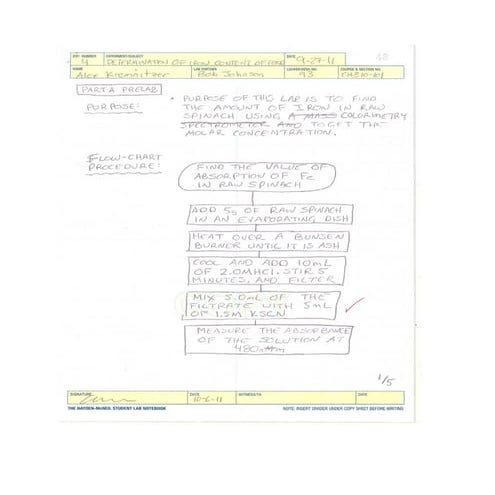 EXP. NUMBER EXPERIMENT/SUBJECT DATE
4 DETERMINATION OF IRON CONTENT OF FOOD 9-27-11
NAME LAB PARTNER LOCKER/DESK NO. COURSE & SECTION NO.
Bob Johnson 93
PART A PRELAB
PURPOSE: • PURPOSE OF THIS LAB IS TO FIND
THE AMOUNT OF IRON IN RAW
SPINACH USING A MASS COLORIMETRY
SPECTROMETER AND TO GET THE
MOLAR CONCENTRATION.
FLOW-CHART
PROCEDURE:
FIND THE VALUE OF
ABSORPTION OF Fe
IN RAW SPINACH
ADD 5g OF RAW SPINACH
IN AN EVAPORATING DISH
HEAT OVER A BUNSEN
BURNER UNTIL IT IS ASH
COOL AND ADD 10mL
OF 2.0M HCl. STIR 5
MINUTES, AND FILTER
MIX 5.0mL OF THE
FILTRATE WITH 5mL
OF 1.5M KSCN
MEASURE THE ABSORBANCE
OF THE SOLUTION AT
480nm
1/5
SIGNATURE DATE WITNESS/TA DATE
10-6-11
THE HAYDEN-McNEIL STUDENT LAB NOTEBOOK NOTE: INSERT DIVIDER UNDER COPY SHEET BEFORE WRITING